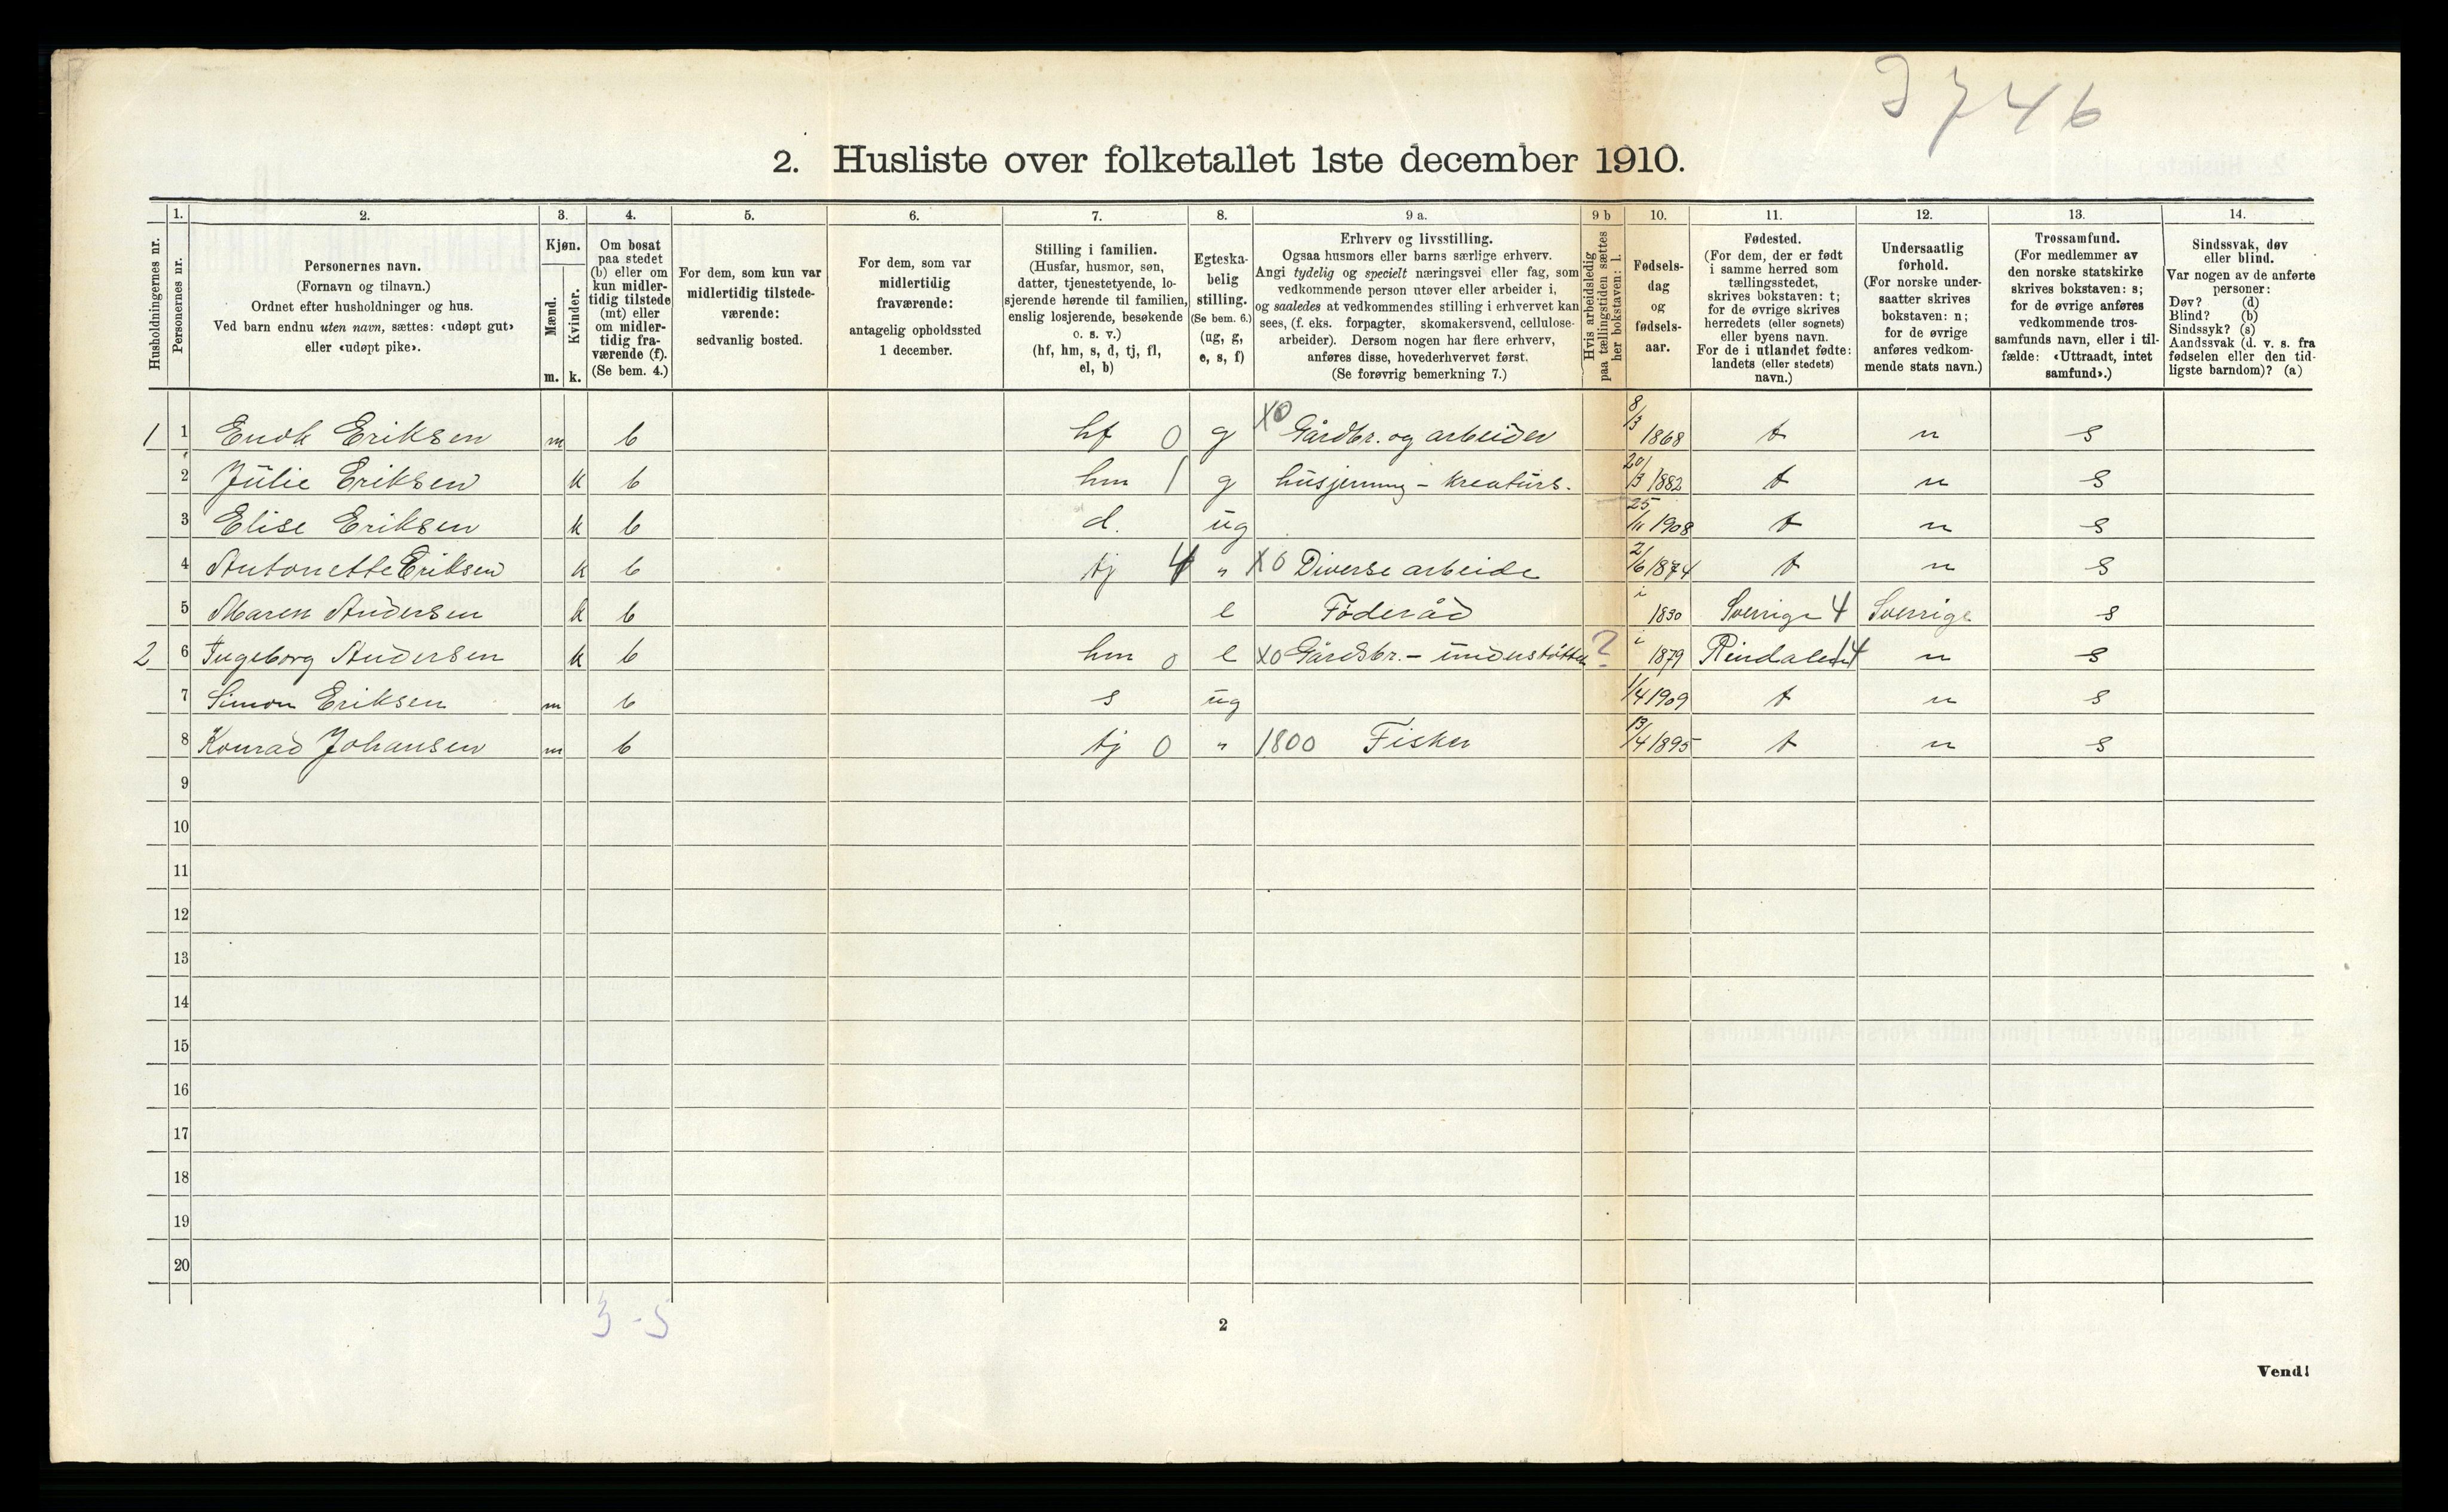 3746
2. Husliste over folketallet 1ste december 1910.
Husholdningernes nr.
1.
Personernes nr.
2.
Personernes navn.
(Fornavn og tilnavn.)
Ordnet efter husholdninger og hus.
Ved barn endnu uten navn, sættes: «udøpt gut»
eller «udøpt pike».
3.
Kjøn.
Mænd.
m.
Kvinder.
k.
4.
Om bosat
paa stedet
(b) eller om
kun midler-
tidig tilstede
(mt) eller
om midler-
tidig fra-
værende (f).
(Se bem. 4.)
5.
For dem, som kun var
midlertidig tilstede-
værende:
sedvanlig bosted.
6.
For dem, som var
midlertidig
fraværende:
antagelig opholdssted
1 december.
7.
Stilling i familien.
(Husfar, husmor, søn,
datter, tjenestetyende, lo-
sjerende hørende til familien,
enslig losjerende, besøkende
o. s. v.)
(hf, hm, s, d, tj, fl,
el, b)
8.
Egteska-
belig
stilling.
(Se bem. 6.)
(ug, g,
e, s, f)
9 a.
Erhverv og livsstilling.
Ogsaa husmors eller barns særlige erhverv.
Angi tydelig og specielt næringsvei eller fag, som
vedkommende person utøver eller arbeider i,
og saaledes at vedkommendes stilling i erhvervet kan
sees, (f. eks. forpagter, skomakersvend, cellulose-
arbeider). Dersom nogen har flere erhverv,
anføres disse, hovederhvervet først.
(Se forøvrig bemerkning 7.)
9 b
Hvis arbeidsledig
paa tællingstiden sættes
her bokstaven: l.
10.
Fødsels-
dag
og
fødsels-
aar.
11.
Fødested.
(For dem, der er født
i samme herred som
tællingsstedet,
skrives bokstaven: t;
for de øvrige skrives
herredets (eller sognets)
eller byens navn.
For de i utlandet fødte:
landets (eller stedets)
navn.)
12.
Undersaatlig
forhold.
(For norske under-
saatter skrives
bokstaven: n;
for de øvrige
anføres vedkom-
mende stats navn.)
13.
Trossamfund.
(For medlemmer av
den norske statskirke
skrives bokstaven: s;
for de øvrige anføres
vedkommende tros-
samfunds navn, eller i til-
fælde: «Uttraadt, intet
samfund».)
14.
Sindssvak, døv
eller blind.
Var nogen av de anførte
personer:
Døv? (d)
Blind? (b)
Sindssyk? (s)
Aandssvak (d. v. s. fra
fødselen eller den tid-
ligste barndom)? (a)
1 1 Eriksen m b hf 0 g X0 Gårdbr. og arbeider 8/3 1868 t n s
2 Julie Eriksen k b hm 1 g husjerning - kreaturs. 20/3 1882 t n s
3 Elise Eriksen k b d. ug 25/11 1908 t n s
4 Antonette Eriksen k b tj 4 " X0 Diverse arbeide 2/6 1874 t n s
5 Maren Andersen k b e Føderåd i 1830 Sverrige 4 Sverrige s
2 6 Ingeborg Andersen k b hm 0 e X0 Gårdsbr. - ? i 1879 n s
7 Simon Eriksen m b s ug 1/4 1909 t n s
8 Konrad Johansen m b tj 0 " 1800 Fisker 13/4 1895 t n s
9
10
11
12
13
14
15
16
17
18
19
20
3 - 5
2
Vend!